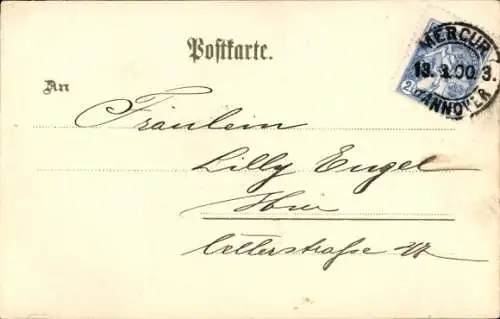 Postkarte.
MERCUR
13. 3. 00. 3.
HANNOVER
2
An
Fräulein
Lilly Engel
Hier
Cellerstraße